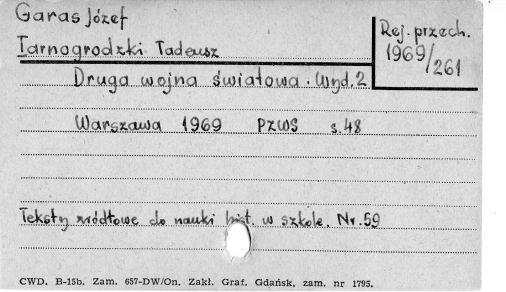 Garas Józef
Tarnogrodzki Tadeusz
Rej. przech.
1969/261
Druga wojna światowa. Wyd. 2
Warszawa 1969 PZWS s. 48
Teksty źródłowe do nauki hist. w szkole. Nr. 59
CWD. B-15b. Zam. 657-DW/On. Zakł. Graf. Gdańsk, zam. nr 1795.